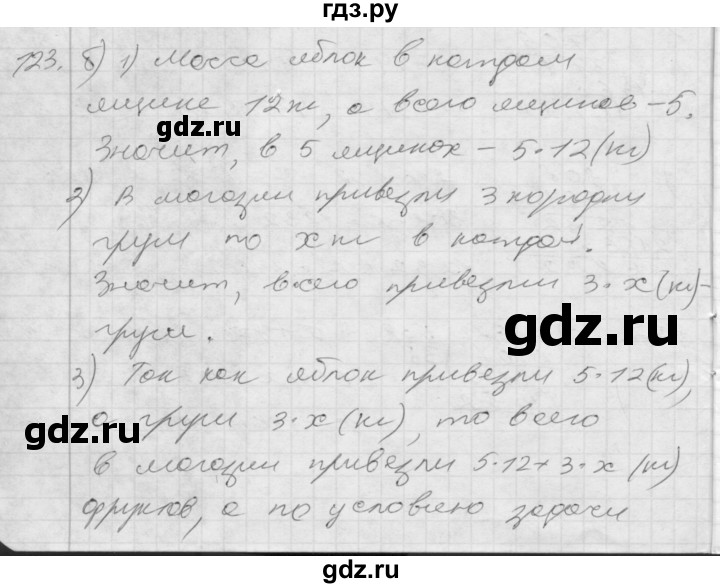 гдз.ру
123. б) 1) Масса яблок в каждом
ящике 12 кг, а всего ящиков – 5.
gdz.ru
Значит, в 5 ящиках – 5·12 (кг)
2) В магазин привезли 3 коробки
груш по x кг в каждой.
Значит, всего привезли 3·x (кг) –
gdz.ru
груш.
3) Так как яблок привезли 5·12 (кг),
gdz.ru
а груш 3·x (кг), то всего
в магазин привезли 5·12+3·x (кг)
фруктов, а по условию задачи
gdz.ru